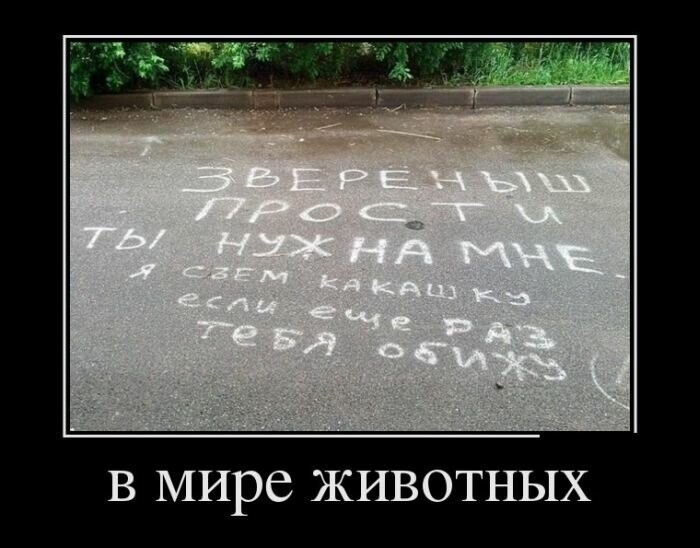 ЗВЕРЁНЫШ
ПРОСТИ
ТЫ НУЖНА МНЕ.
Я СЪЕМ КАКАШКУ
если еще РАЗ
Тебя обижу
в мире животных